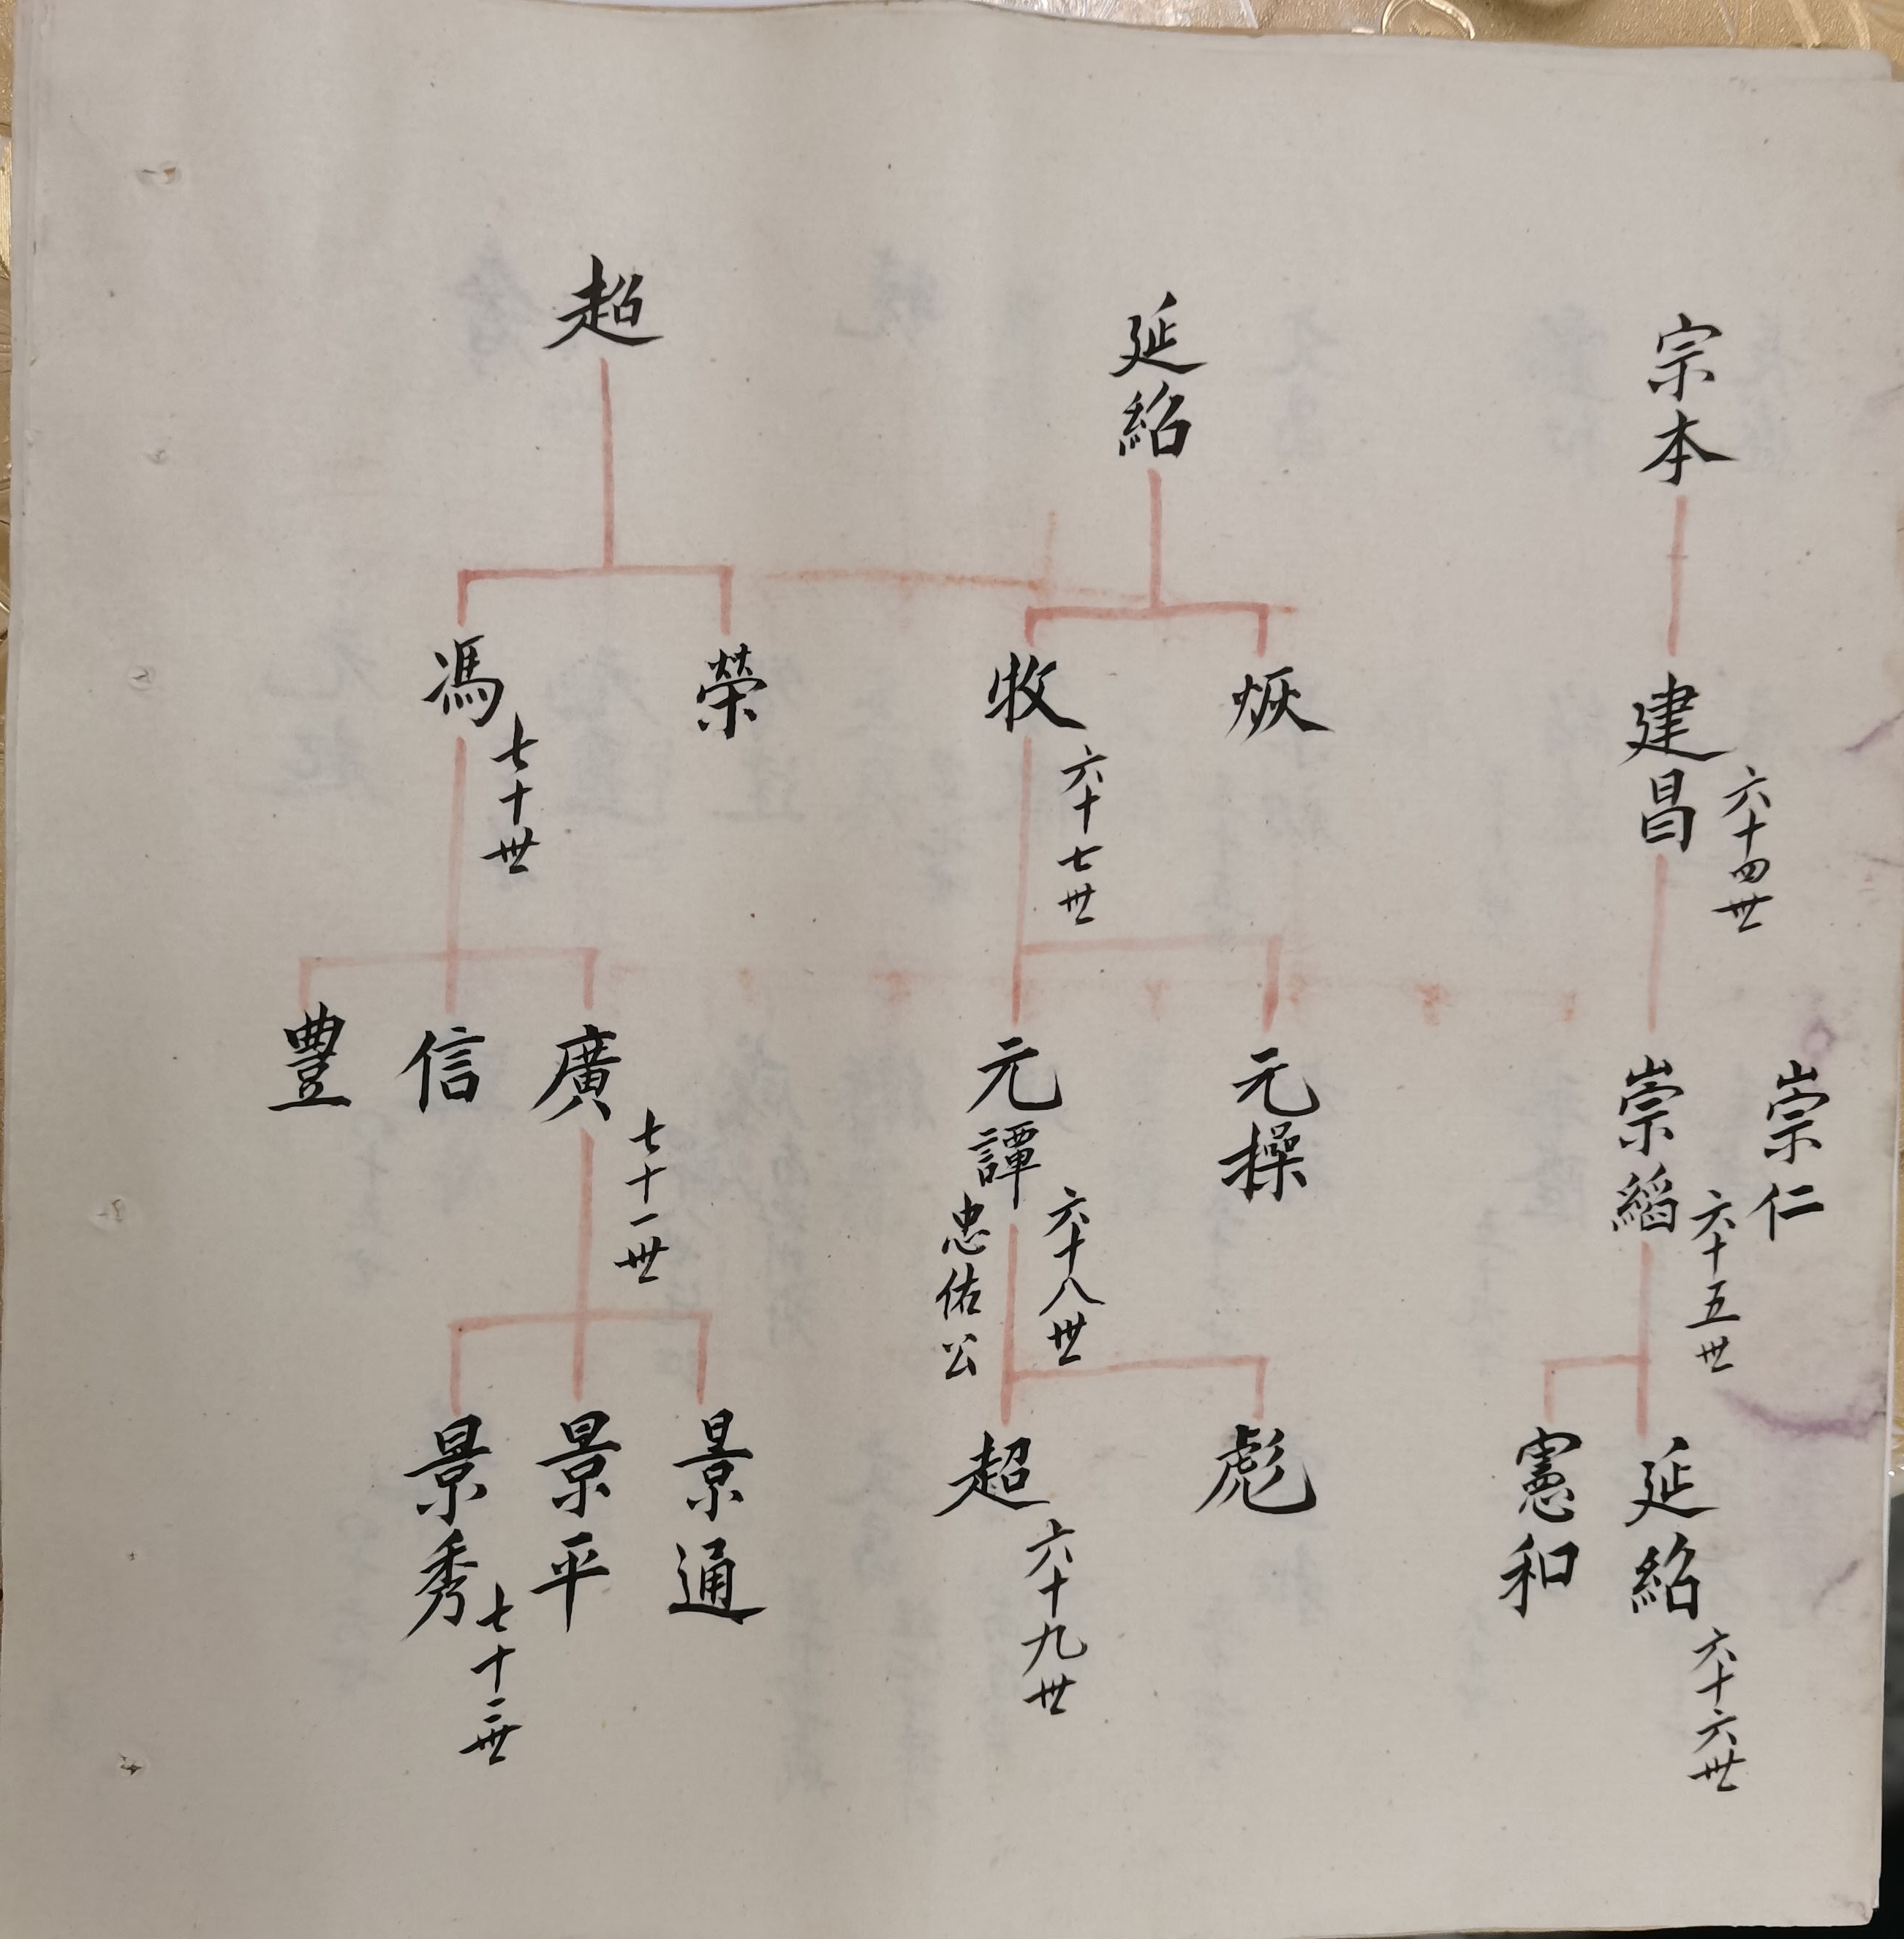 宗本
建昌
六十四世
崇仁
崇縚
六十五世
延紹
六十六世
憲和
延紹
烣
牧
六十七世
元操
元譚
六十八世
忠佑公
彪
超
六十九世
超
榮
馮
七十世
廣
七十一世
信
豊
景通
景平
景秀
七十二世